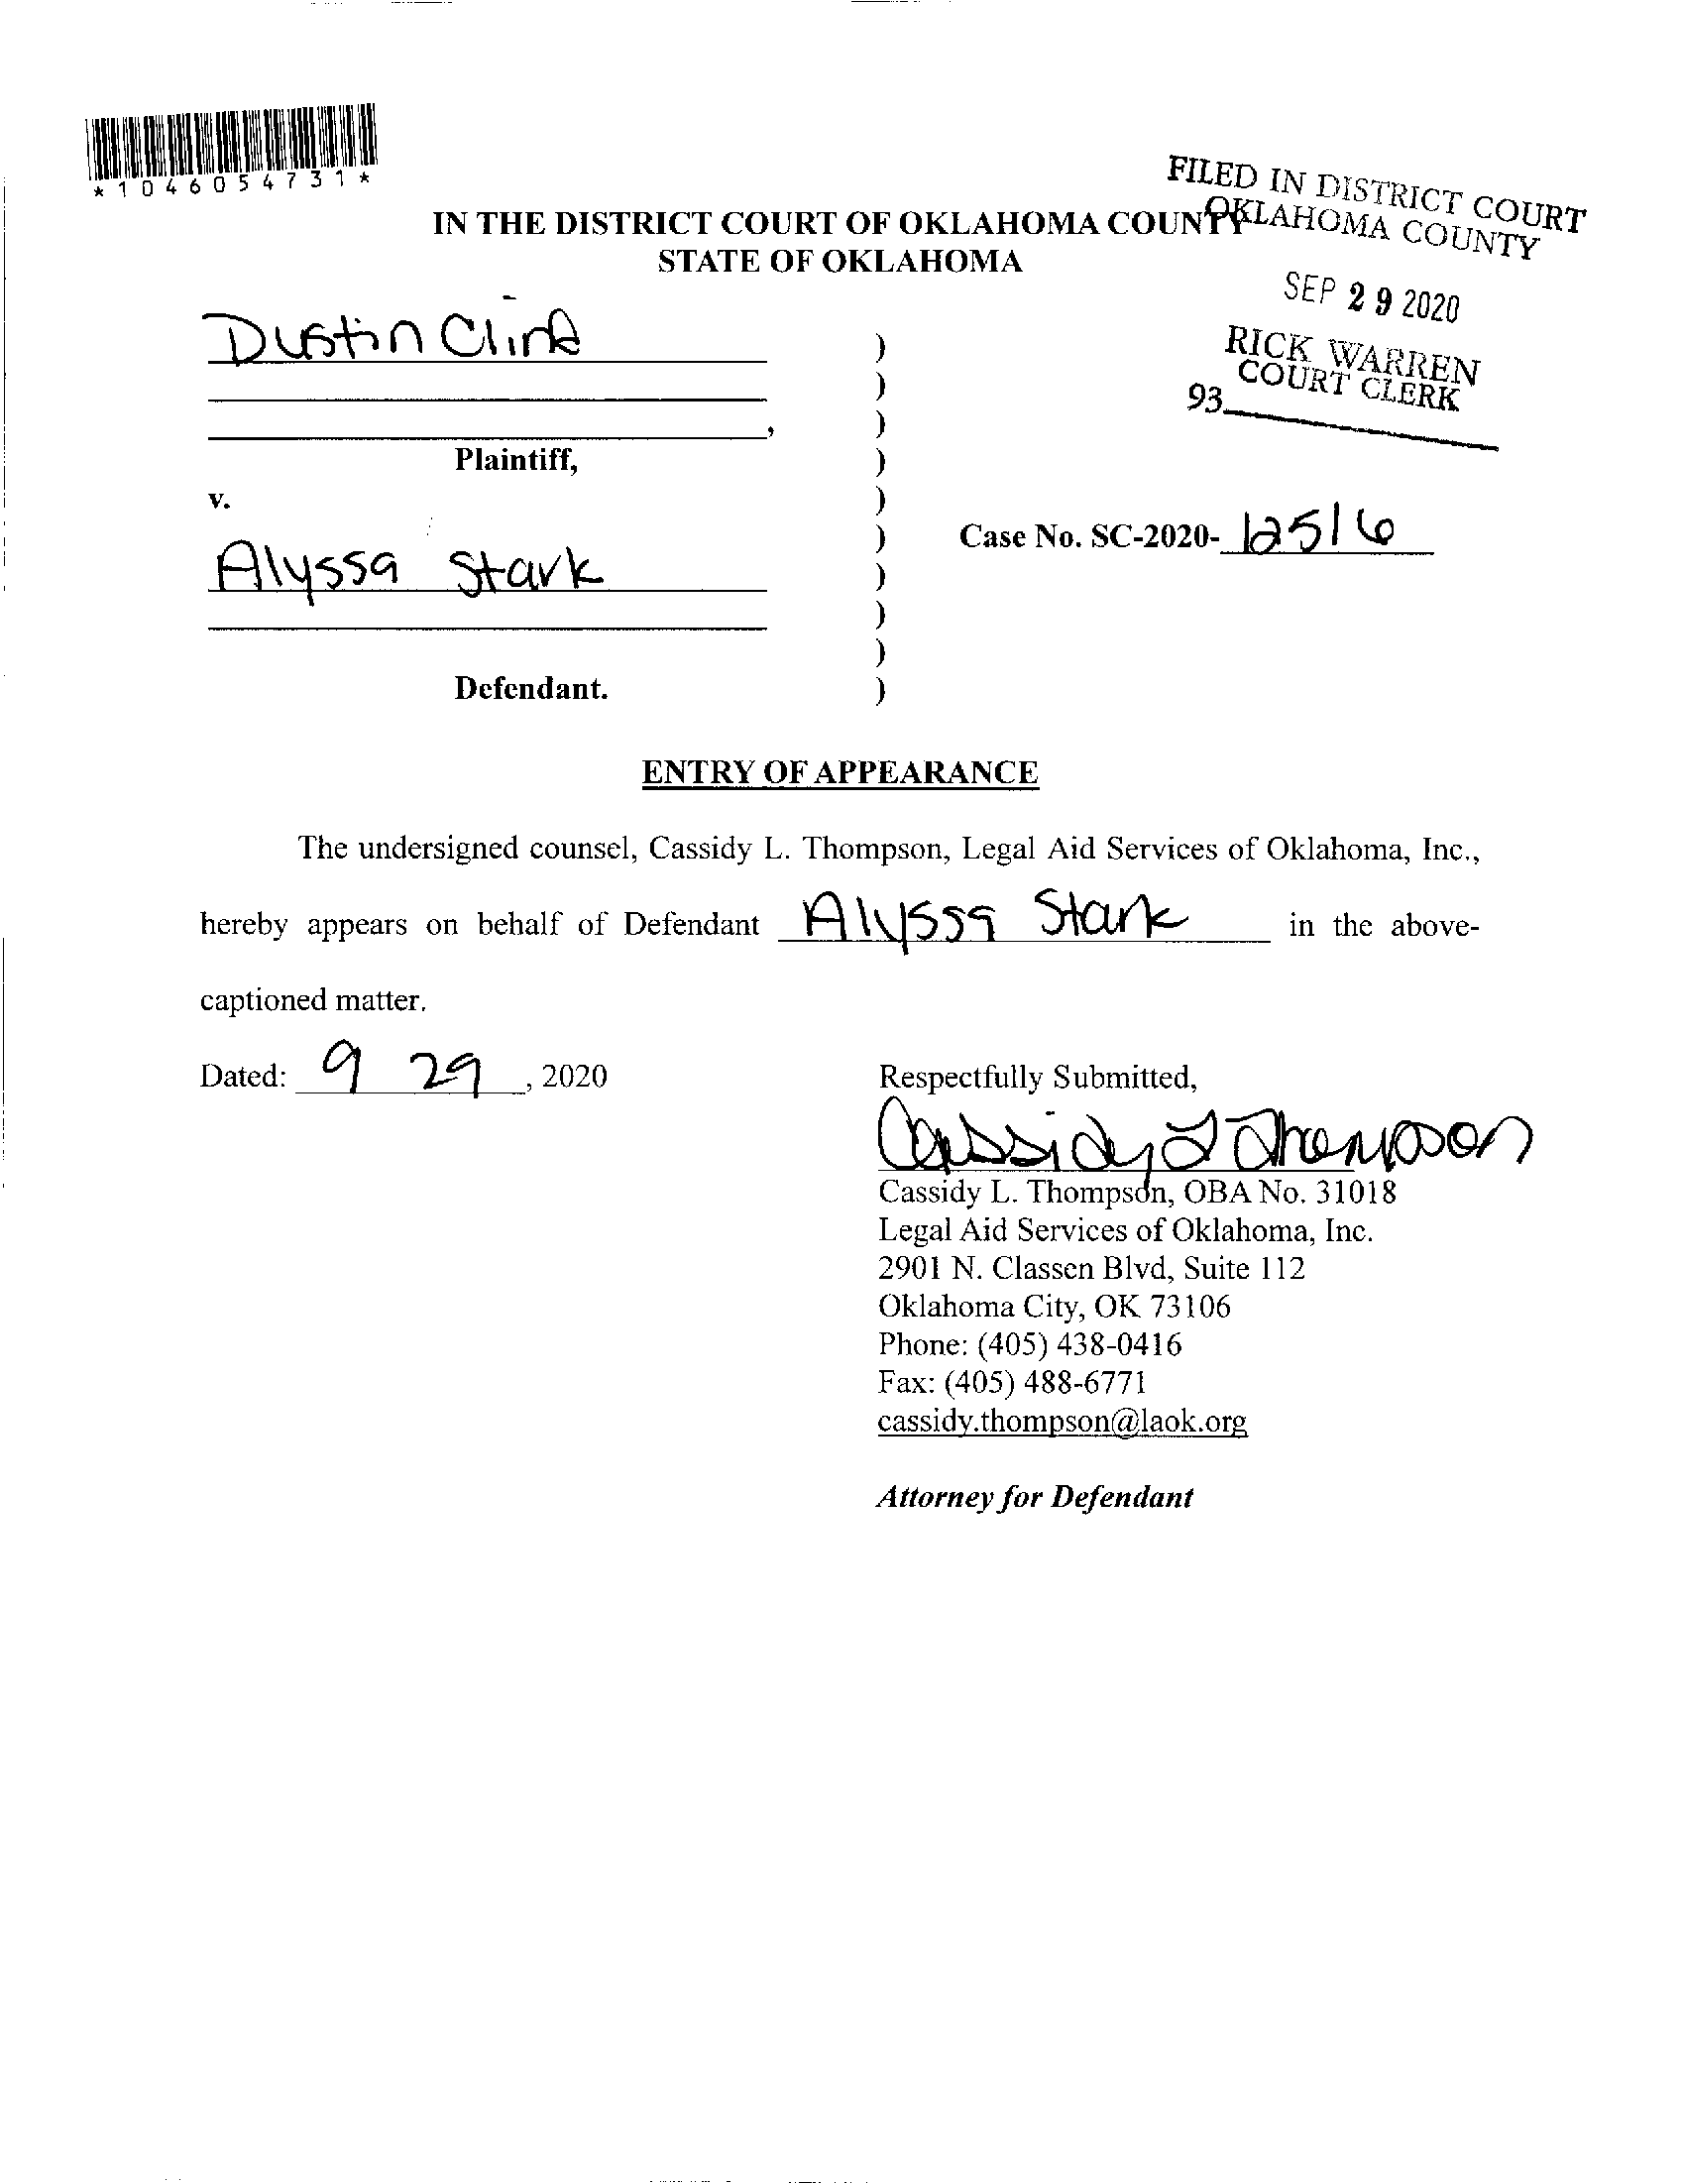 *1046054731*
FILED IN DISTRICT COURT
OKLAHOMA COUNTY
IN THE DISTRICT COURT OF OKLAHOMA COUNTY
STATE OF OKLAHOMA
SEP 29 2020
RICK WARREN
COURT CLERK
93
Dustin
)
)
,
)
Plaintiff,
)
v.
)
Case No. SC-2020- 12516
)
Alyssa Stark
)
)
)
Defendant.
)
ENTRY OF APPEARANCE
The undersigned counsel, Cassidy L. Thompson, Legal Aid Services of Oklahoma, Inc.,
hereby appears on behalf of Defendant Alyssa Stark in the above-
captioned matter.
Dated: 9 29, 2020
Respectfully Submitted,
Cassidy L Thompson
Cassidy L. Thompson, OBA No. 31018
Legal Aid Services of Oklahoma, Inc.
2901 N. Classen Blvd, Suite 112
Oklahoma City, OK 73106
Phone: (405) 438-0416
Fax: (405) 488-6771
cassidy.thompson@laok.org
Attorney for Defendant